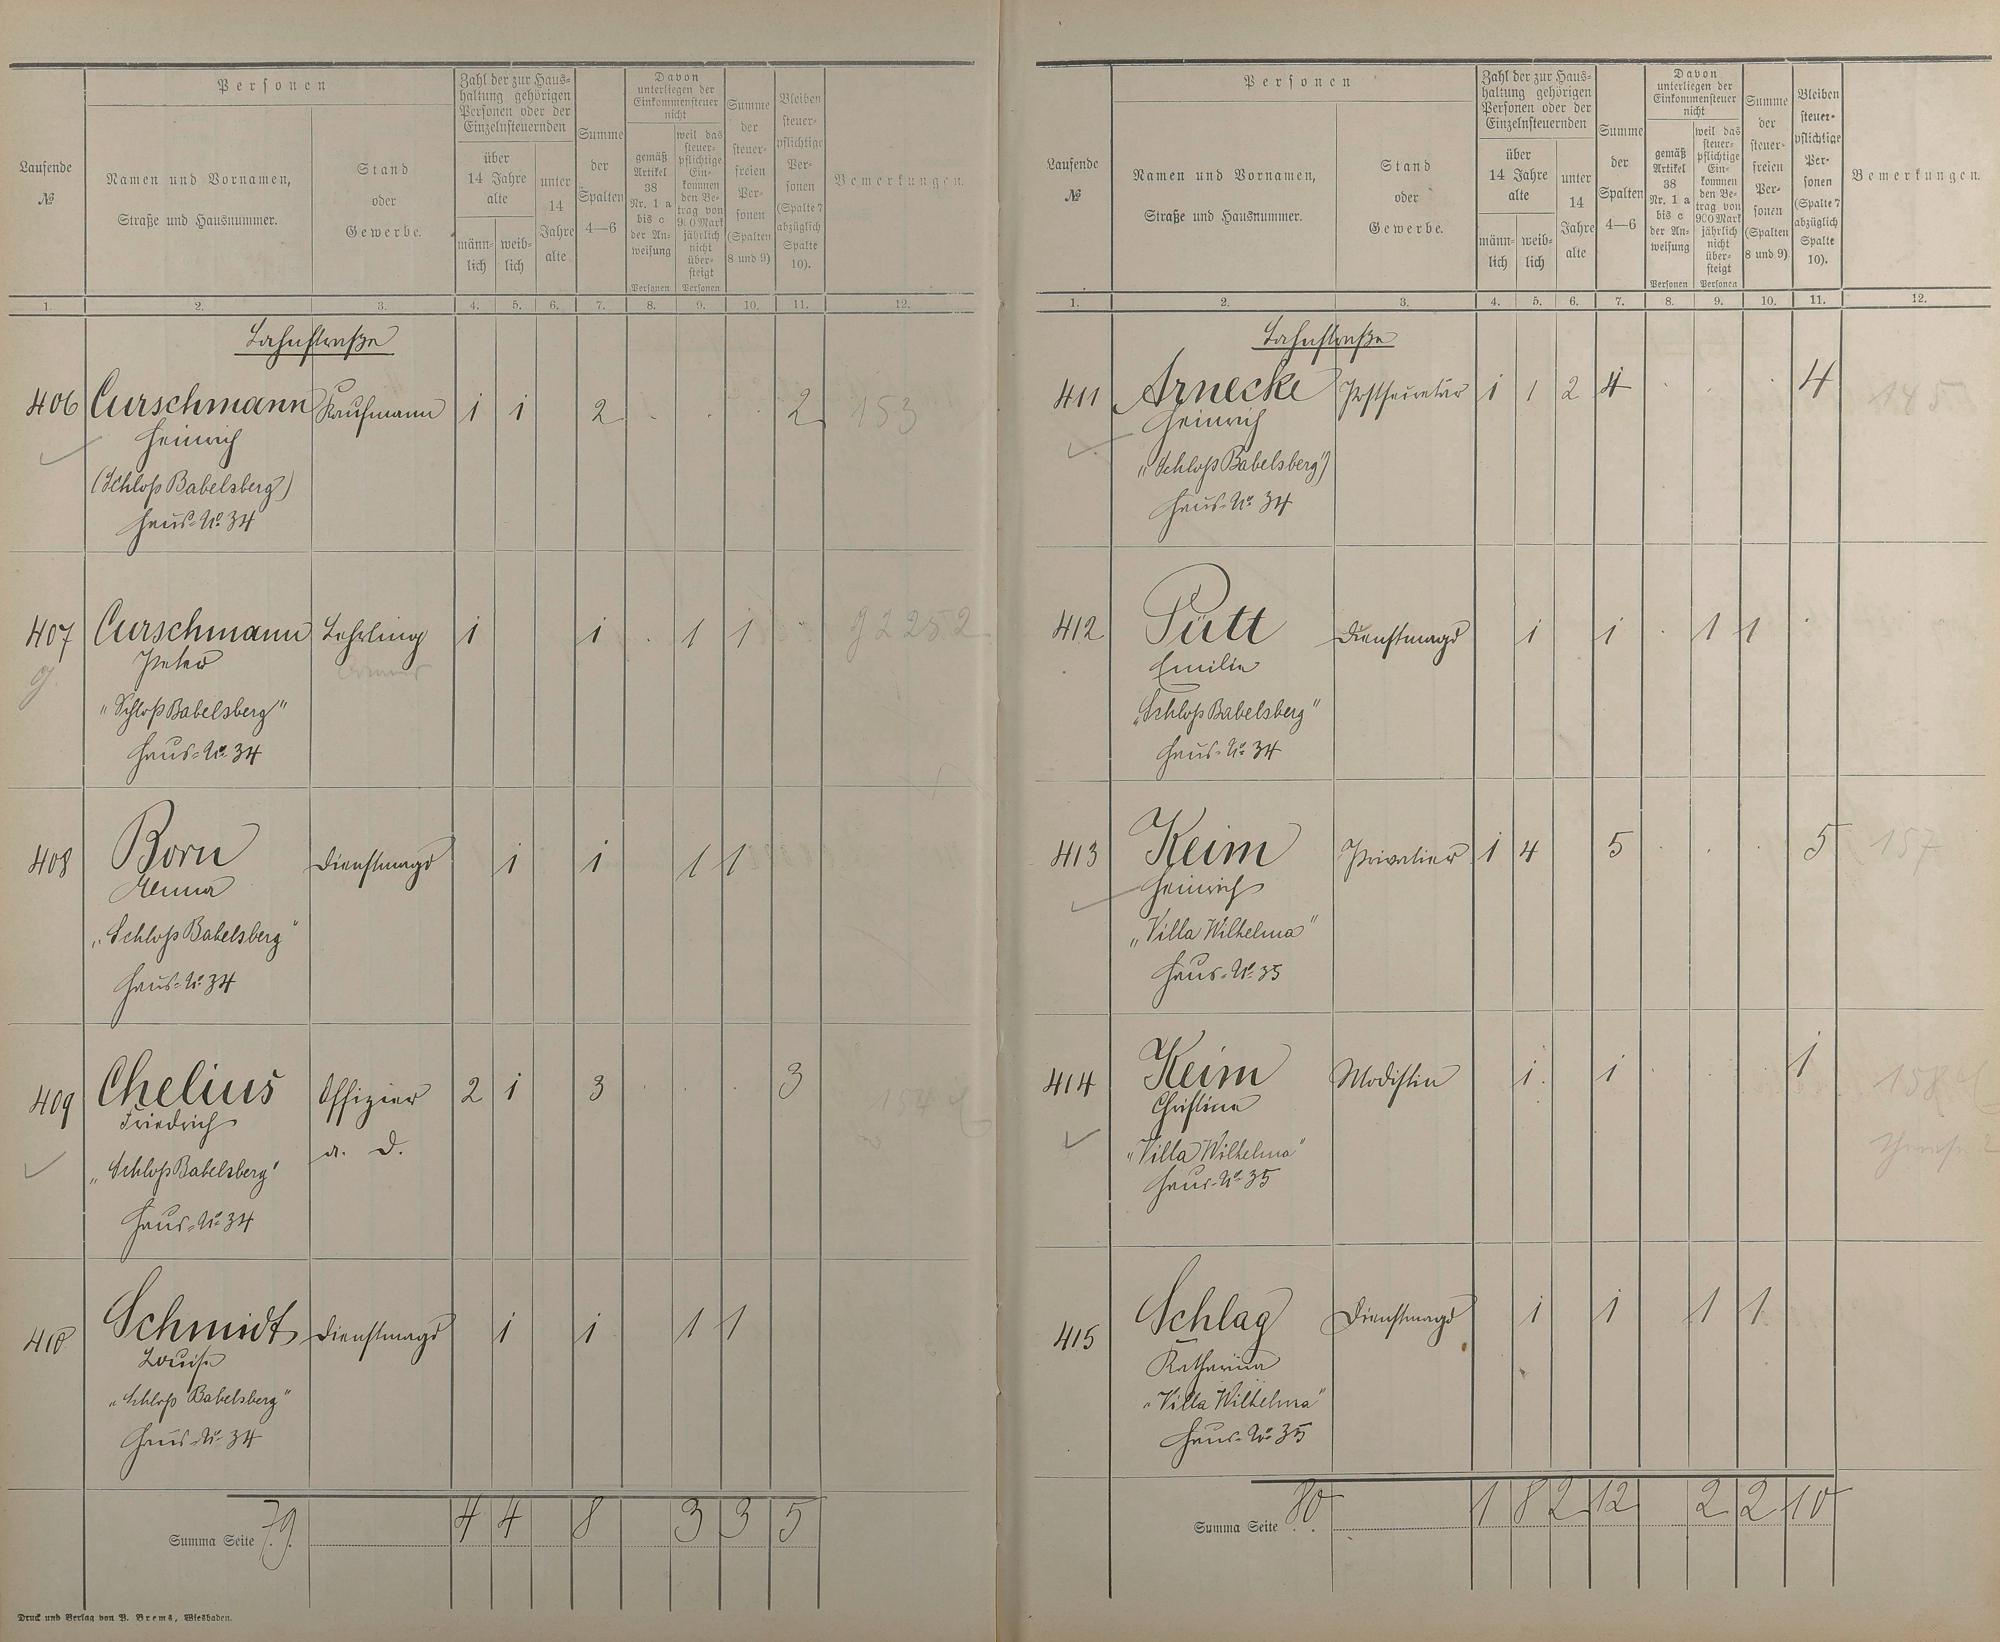 Laufende
№
Personen
Namen und Vornamen,
Straße und Hausnummer.
Stand
oder
Gewerbe.
Zahl der zur Haus-
haltung gehörigen
Personen oder der
Einzelnsteuernden
über
14 Jahre
alte
männ-
lich
weib-
lich
unter
14
Jahre
alte
Summe
der
Spalten
4—6
Davon
unterliegen der
Einkommensteuer
nicht
gemäß
Artikel
38
Nr. 1 a
bis c
der An-
weisung
Personen
weil das
steuer-
pflichtige
Ein-
kommen
den Be-
trag von
900 Mark
jährlich
nicht
über-
steigt
Personen
Summe
der
steuer-
freien
Per-
sonen
(Spalten
8 und 9)
Bleiben
steuer-
pflichtige
Per-
sonen
(Spalte 7
abzüglich
Spalte
10).
Bemerkungen.
1. 2. 3. 4. 5. 6. 7. 8. 9. 10. 11. 12.
Lahnstraße
406 Curschmann Kaufmann 1 1 2 . . . 2 153
Heinrich
(Schloß Babelsberg)
Haus-No 34
407 Curschmann Lehrling 1 1 . 1 1 . g 2252
Peter
"Schloß Babelsberg"
Haus-No 34
408 Born Dienstmagd 1 1 1 1
Anna
"Schloß Babelsberg"
Haus-No 34
409 Chelius Offizier 2 1 3 . . . 3 154
Friedrich a. D.
"Schloß Babelsberg"
Haus-No 34
410 Schmidt Dienstmagd 1 1 1 1
Louise
"Schloß Babelsberg"
Haus-No 34
Summa Seite 79. 4 4 8 3 3 5
Druck und Verlag von P. Brems, Wiesbaden.
Laufende
№
Personen
Namen und Vornamen,
Straße und Hausnummer.
Stand
oder
Gewerbe.
Zahl der zur Haus-
haltung gehörigen
Personen oder der
Einzelnsteuernden
über
14 Jahre
alte
männ-
lich
weib-
lich
unter
14
Jahre
alte
Summe
der
Spalten
4—6
Davon
unterliegen der
Einkommensteuer
nicht
gemäß
Artikel
38
Nr. 1 a
bis c
der An-
weisung
Personen
weil das
steuer-
pflichtige
Ein-
kommen
den Be-
trag von
900 Mark
jährlich
nicht
über-
steigt
Personen
Summe
der
steuer-
freien
Per-
sonen
(Spalten
8 und 9)
Bleiben
steuer-
pflichtige
Per-
sonen
(Spalte 7
abzüglich
Spalte
10).
Bemerkungen.
1. 2. 3. 4. 5. 6. 7. 8. 9. 10. 11. 12.
Lahnstraße
411 Arnecke Postsecretär 1 1 2 4 . . . 4
Heinrich
"Schloß Babelsberg")
Haus-No 34
412 Pütt Dienstmagd 1 1 . 1 1 .
Emilie
"Schloß Babelsberg"
Haus-No 34
413 Keim Privatier 1 4 5 . . . 5 157
Heinrich
"Villa Wilhelma"
Haus-No 35
414 Keim Modistin 1 1 . . . 1 158
Christine
"Villa Wilhelma"
Haus-No 35
415 Schlag Dienstmagd 1 1 1 1
Katharina
"Villa Wilhelma"
Haus-No 35
Summa Seite 80. 1 8 2 12 2 2 10